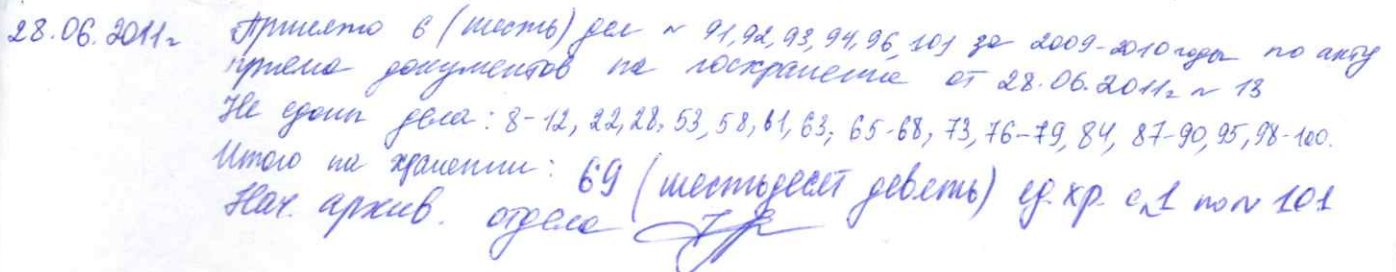 28.06.2011г Принято 6 (шесть) дел № 91,92,93,94,96,101 за 2009-2010 годы по акту
приема документов на госхранение от 28.06.2011г № 13
Не сданы дела: 8-12, 22,28, 53,58, 61, 63, 65-68, 73, 76-79, 84, 87-90, 95, 98-100.
Итого на хранении: 69 (шестьдесят девять) ед.хр. с №1 по № 101
Нач. архив. отдела